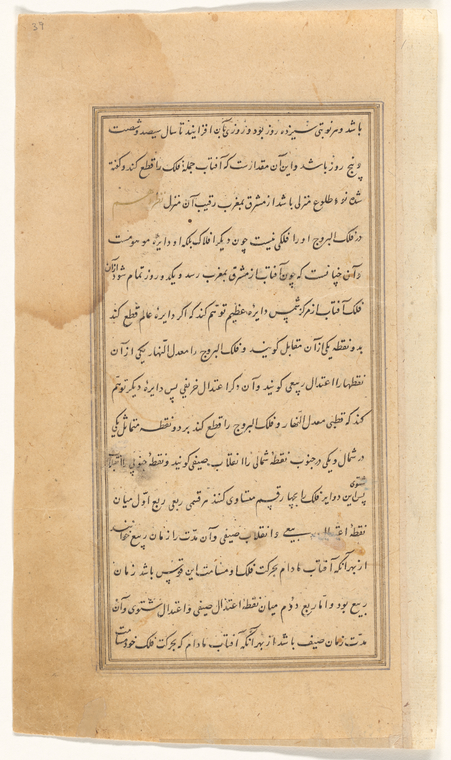 39
باشد و هر نوبتی سیزده روز بود و روزی بآن افزایند تا سال سیصد و شصت
و پنج روز باشد و این آن مقدارست که آفتاب جملهٔ فلک را قطع کند و گفته
شده که طلوع منزلی باشد از مشرق بمغرب رقیب آن منزل
در فلک البروج او را فلکی نیست چون دیگر افلاک بلکه او دایرهٔ موهومست
و آن چنانست که چون آفتاب از مشرق بمغرب رسد و یک دور روز تمام شود از آن
فلک آفتاب از مرکز شمس دایرهٔ عظیم توهم کند که اگر دایره عالم قطع کند
بدو نقطه یکی از آن متقابل گویند و فلک البروج را معدل النهار یکی از آن
نقطها را اعتدال ربیعی گویند و آن دگر اعتدال خریفی پس دایره دیگر توهم
کند که قطبی معدل النهار و فلک البروج را قطع کند بر دو نقطه متماثل یکی
در شمال و یکی در جنوب نقطه شمالی را انقلاب صیفی گویند و نقطه جنوبی را انقلاب
شتوی
پس این دوایر فلک را بچهار قسم متساوی کنند هر قسمی ربعی ربع اول میان
نقطه اعتدال ربیعی و انقلاب صیفی و آن مدت را زمان ربیع خوانند
از بهر آنکه آفتاب مادام بحرکت فلک او مسامت این قوس باشد زمان
ربیع بود و اما ربع دوم میان نقطه اعتدال صیفی و اعتدال شتوی و آن
مدت زمان صیف باشد از بهر آنکه آفتاب مادام که بحرکت فلک خود مسامت